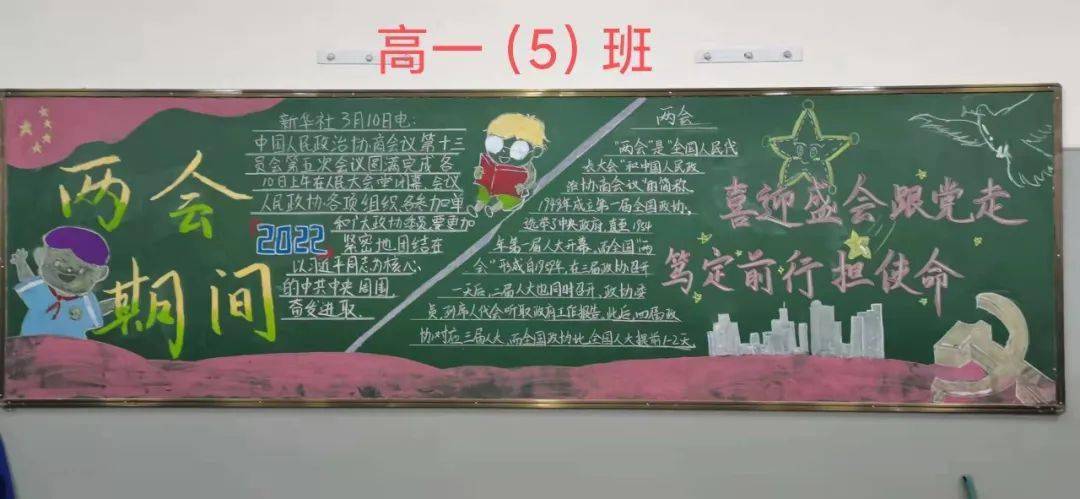 高一（5）班
两会
期间
新华社 3月10日电:
中国人民政治协商会议第十三
员会第五次会议圆满完成各
10日上午在人民大会堂闭幕,会议
人民政协各项组织,各参加单
和广大政协委员,要更加
2022
紧密地团结在
以习近平同志为核心
的中共中央周围,
奋发进取.
两会
"两会"是"全国人民代
表大会"和中国人民政
治协商会议"的简称.
1949年成立第一届全国政协,
选举了中央政府,直至1954
年第一届人大开幕,而全国"两
会"形成自1959年,在三届政协召开
一天后,二届人大也同时召开,政协委
员列席人代会听取政府工作报告,此后,四届政
协对应三届人大,而全国政协比全国人大提前1-2天.
喜迎盛会跟党走
笃定前行担使命